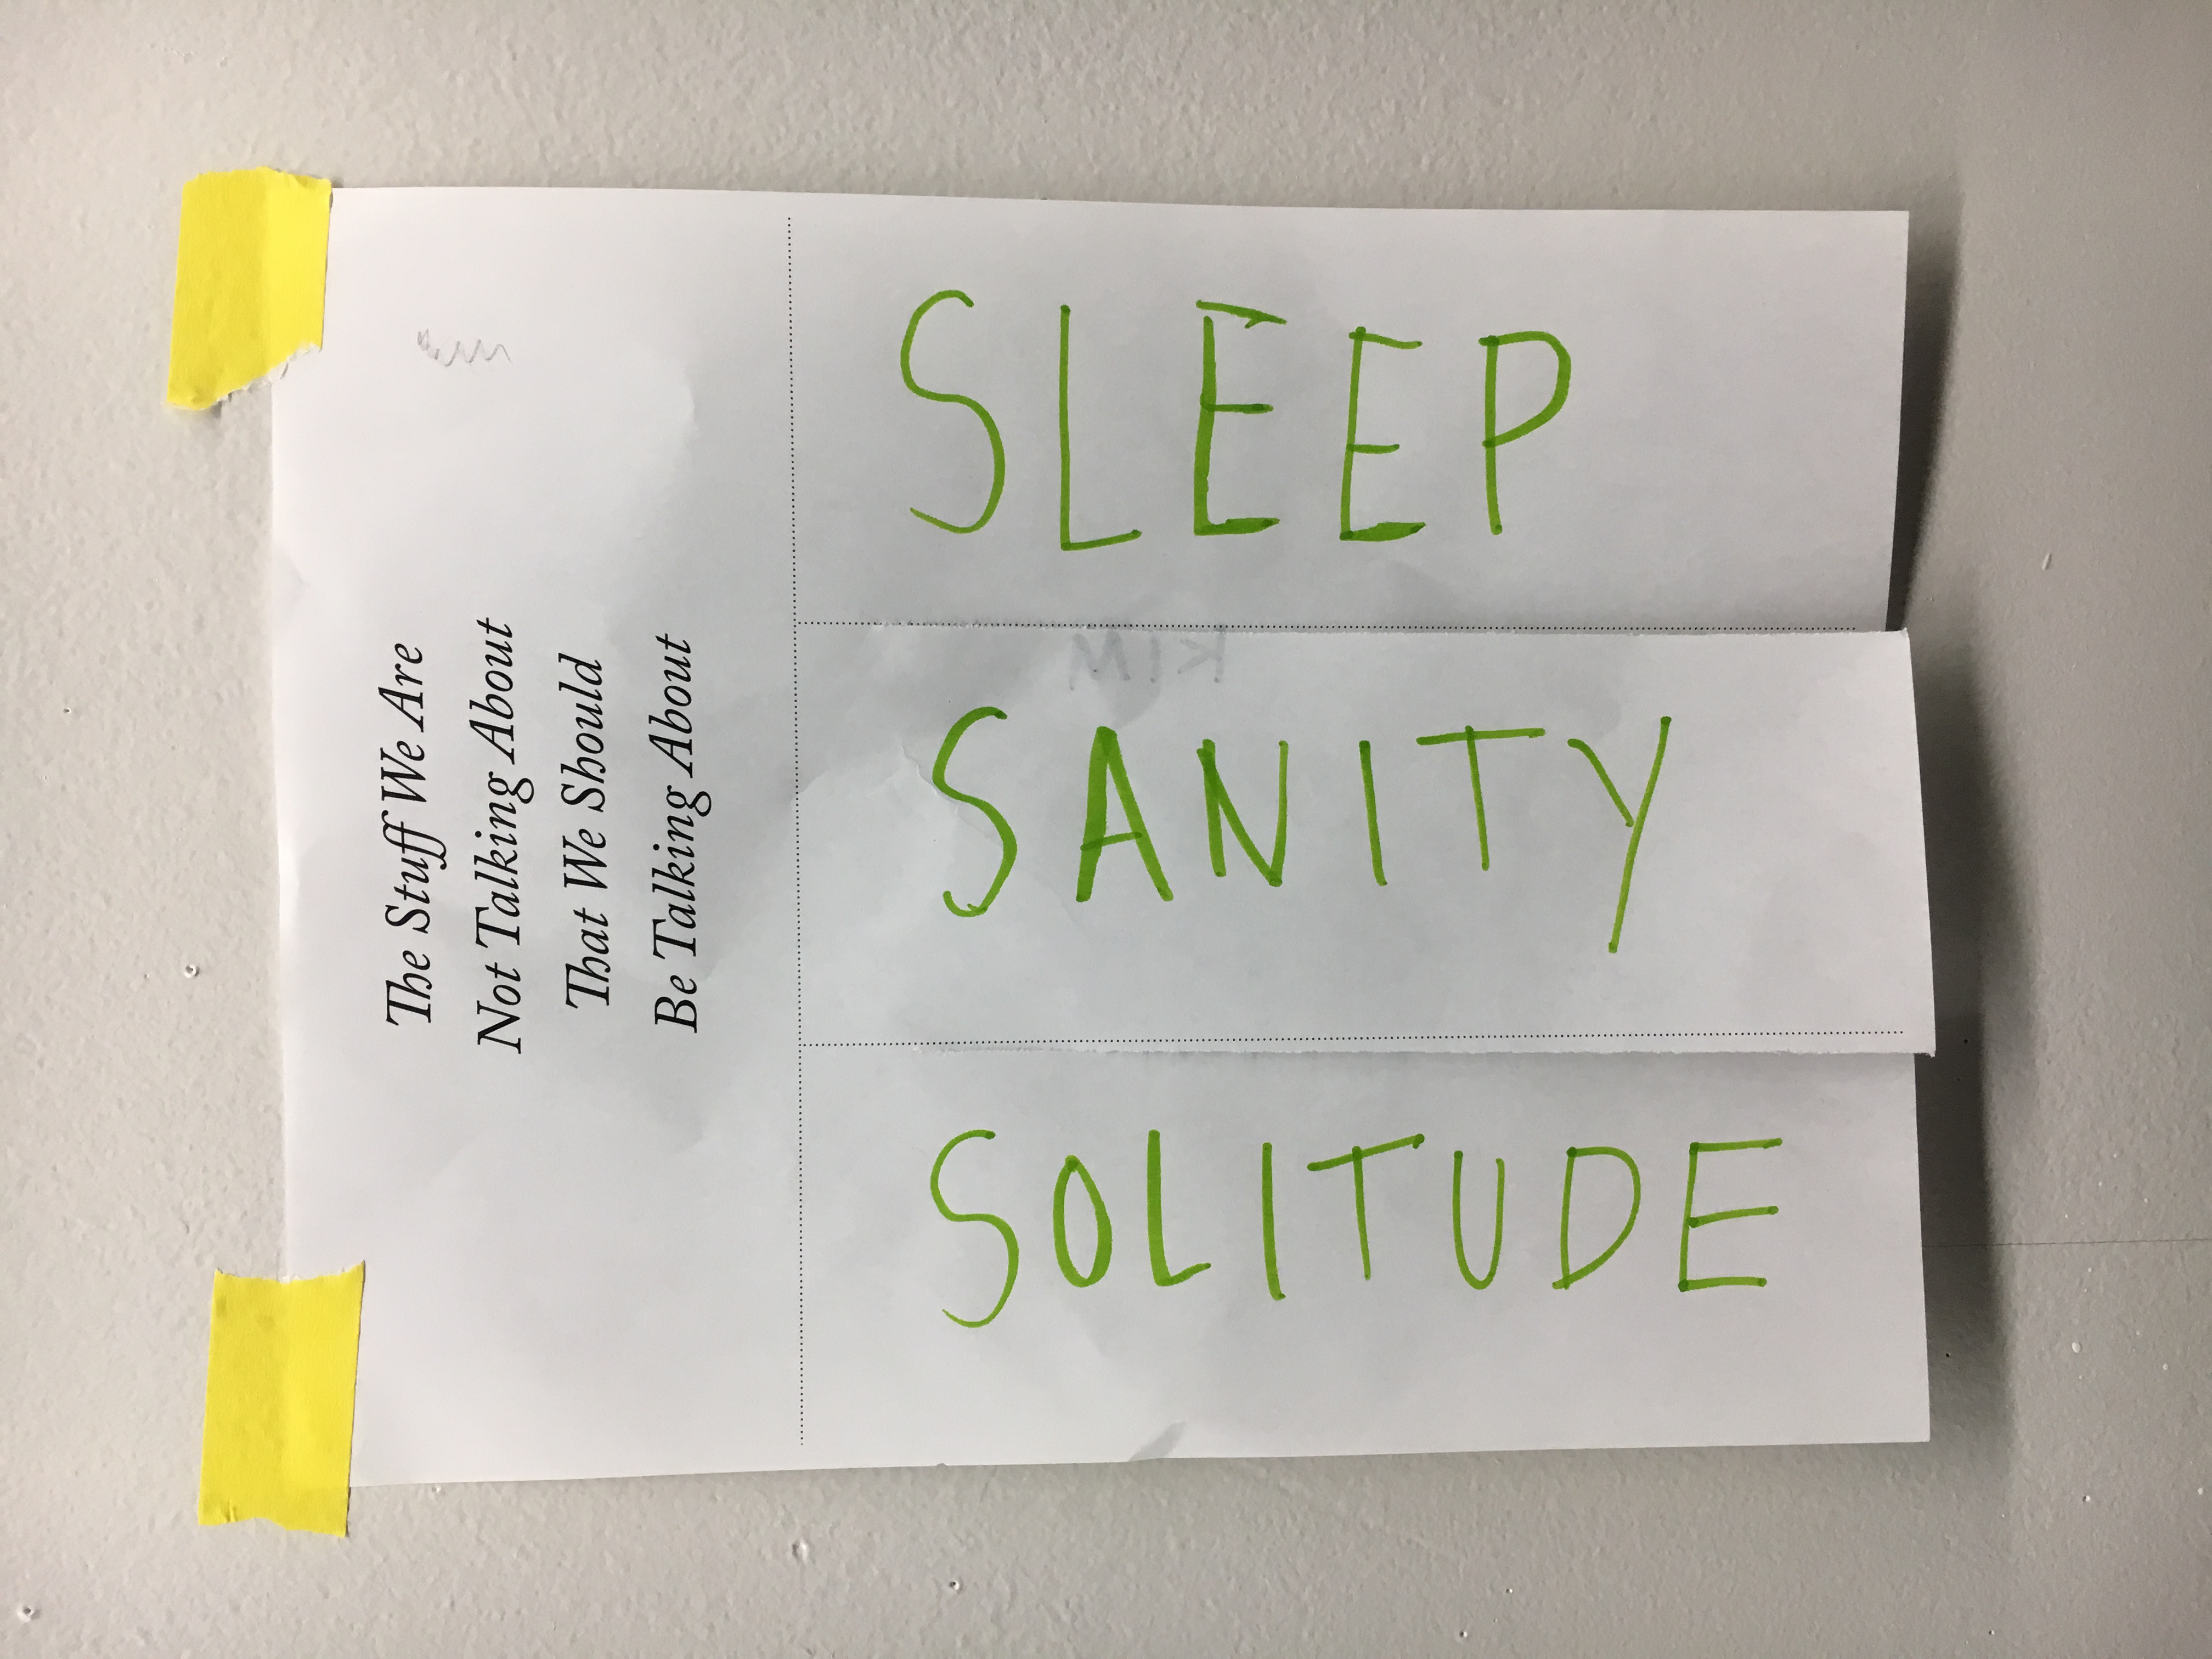 The Stuff We Are
Not Talking About
That We Should
Be Talking About
SLEEP
KIM
SANITY
SOLITUDE